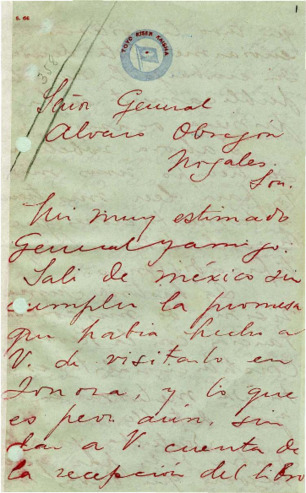 TOYO KISEN KAISHA
Señor General
Alvaro Obregón
Nogales
Son.
Mi muy estimado
General y amigo:
Salí de méxico sin
cumplir la promesa
que había hecho a
V. de visitarlo en
Sonora, y lo que
es peor aún, sin
dar a V. cuenta de
la recepción del libro